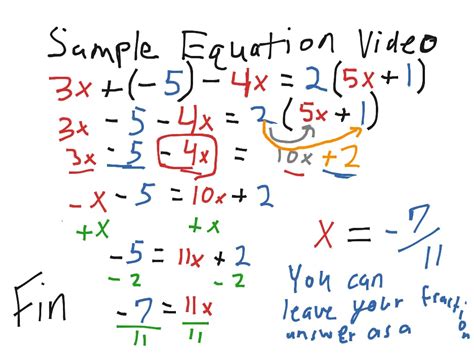 Sample Equation Video
3x + (-5) - 4x = 2(5x + 1)
3x - 5 - 4x = 2(5x + 1)
3x - 5 - 4x = 10x + 2
-x - 5 = 10x + 2
+x +x
-5 = 11x + 2
-2 -2
-7 = 11x
11 11
x = -7/11
You can
leave your fraction
answer as a
Fin